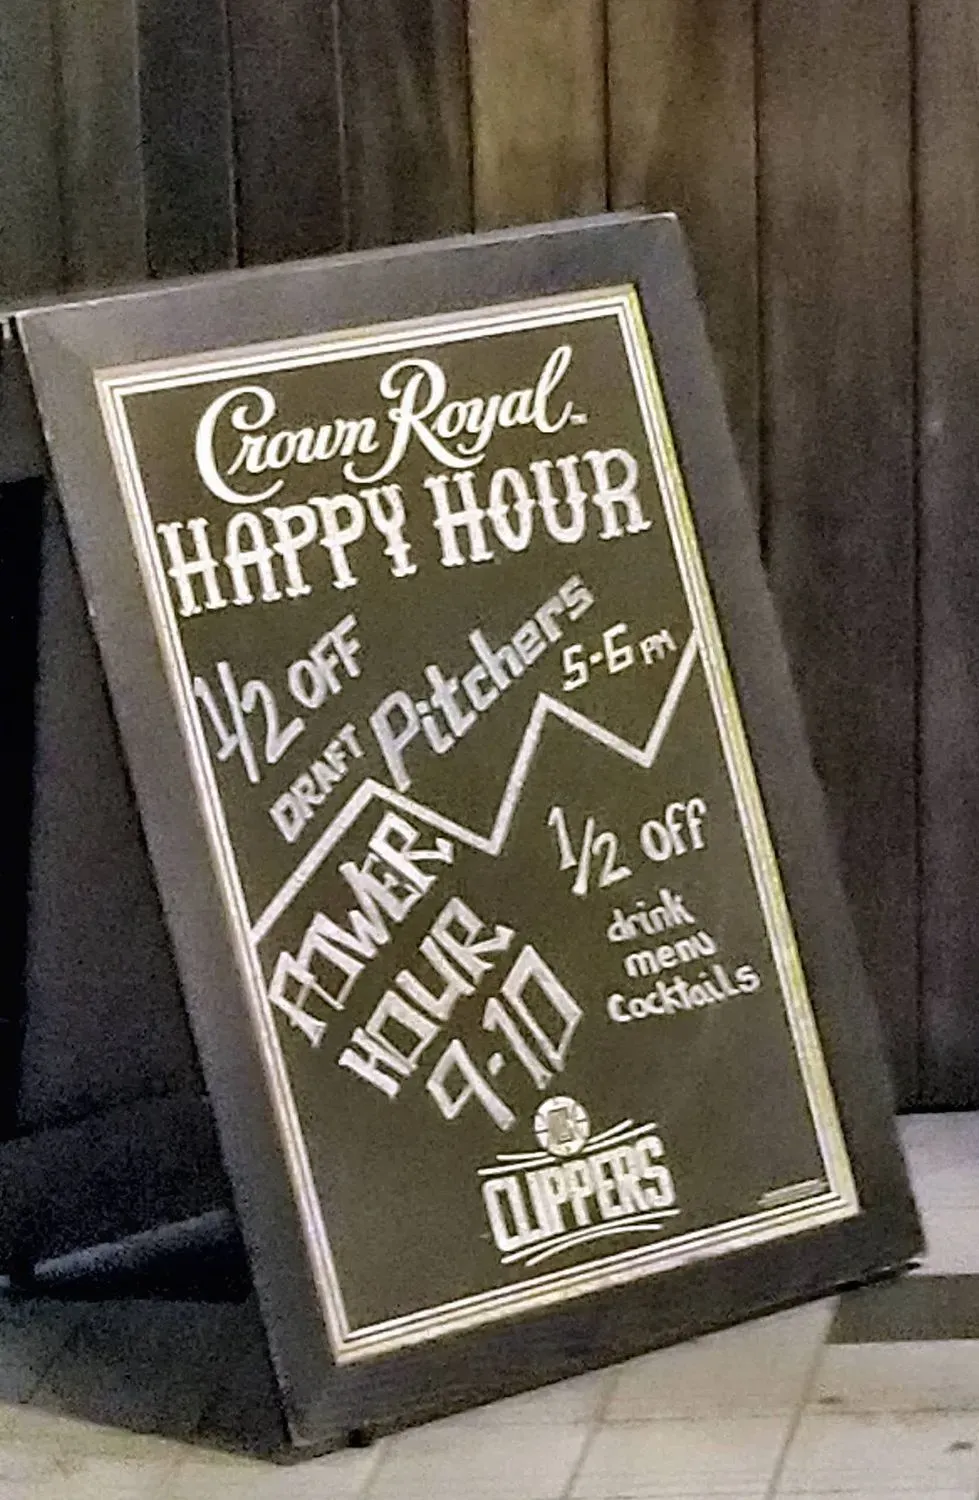 Crown Royal™
HAPPY HOUR
1/2 OFF
DRAFT Pitchers
5-6 PM
POWER
HOUR
9-10
1/2 Off
drink
menu
Cocktails
CLIPPERS